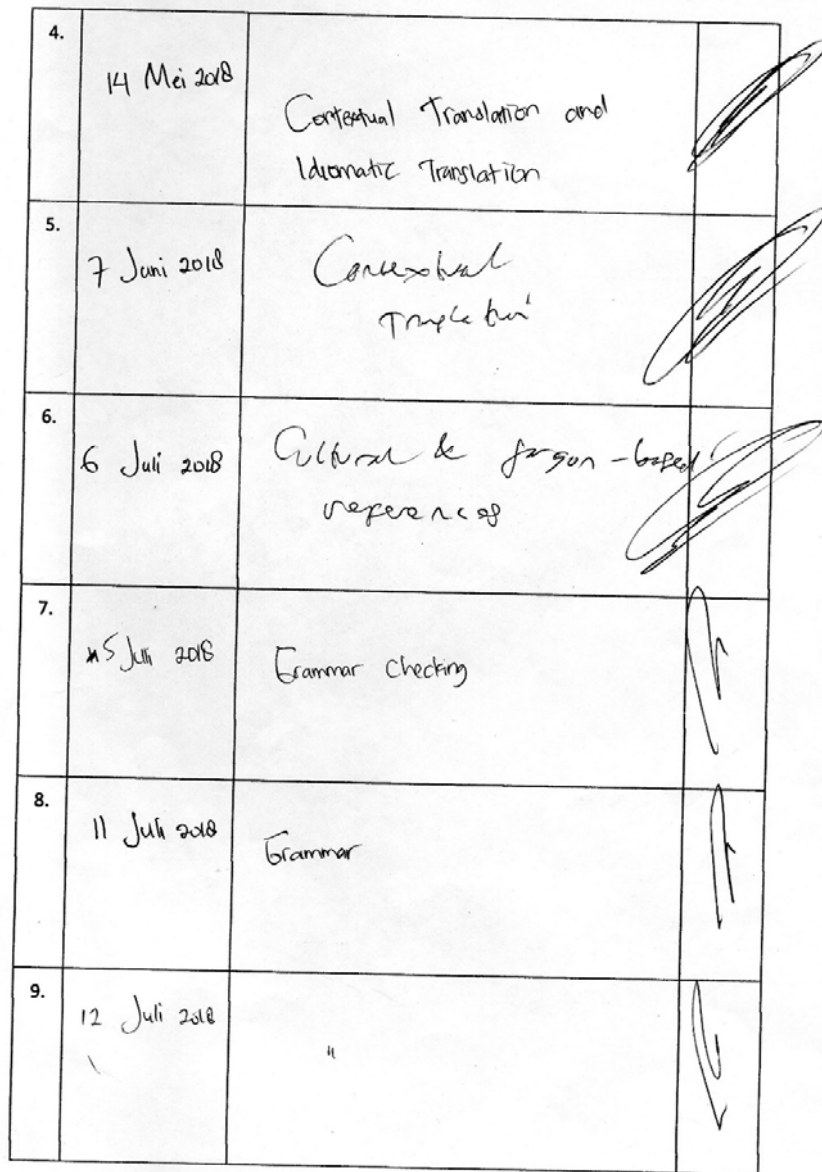 4.
14 Mei 2018
Contextual Translation and
Idiomatic Translation
5.
7 Juni 2018
Contextual
Translation
6.
6 Juli 2018
Cultural & jargon-based
references
7.
5 Juli 2018
Grammar Checking
8.
11 Juli 2018
Grammar
9.
12 Juli 2018
"